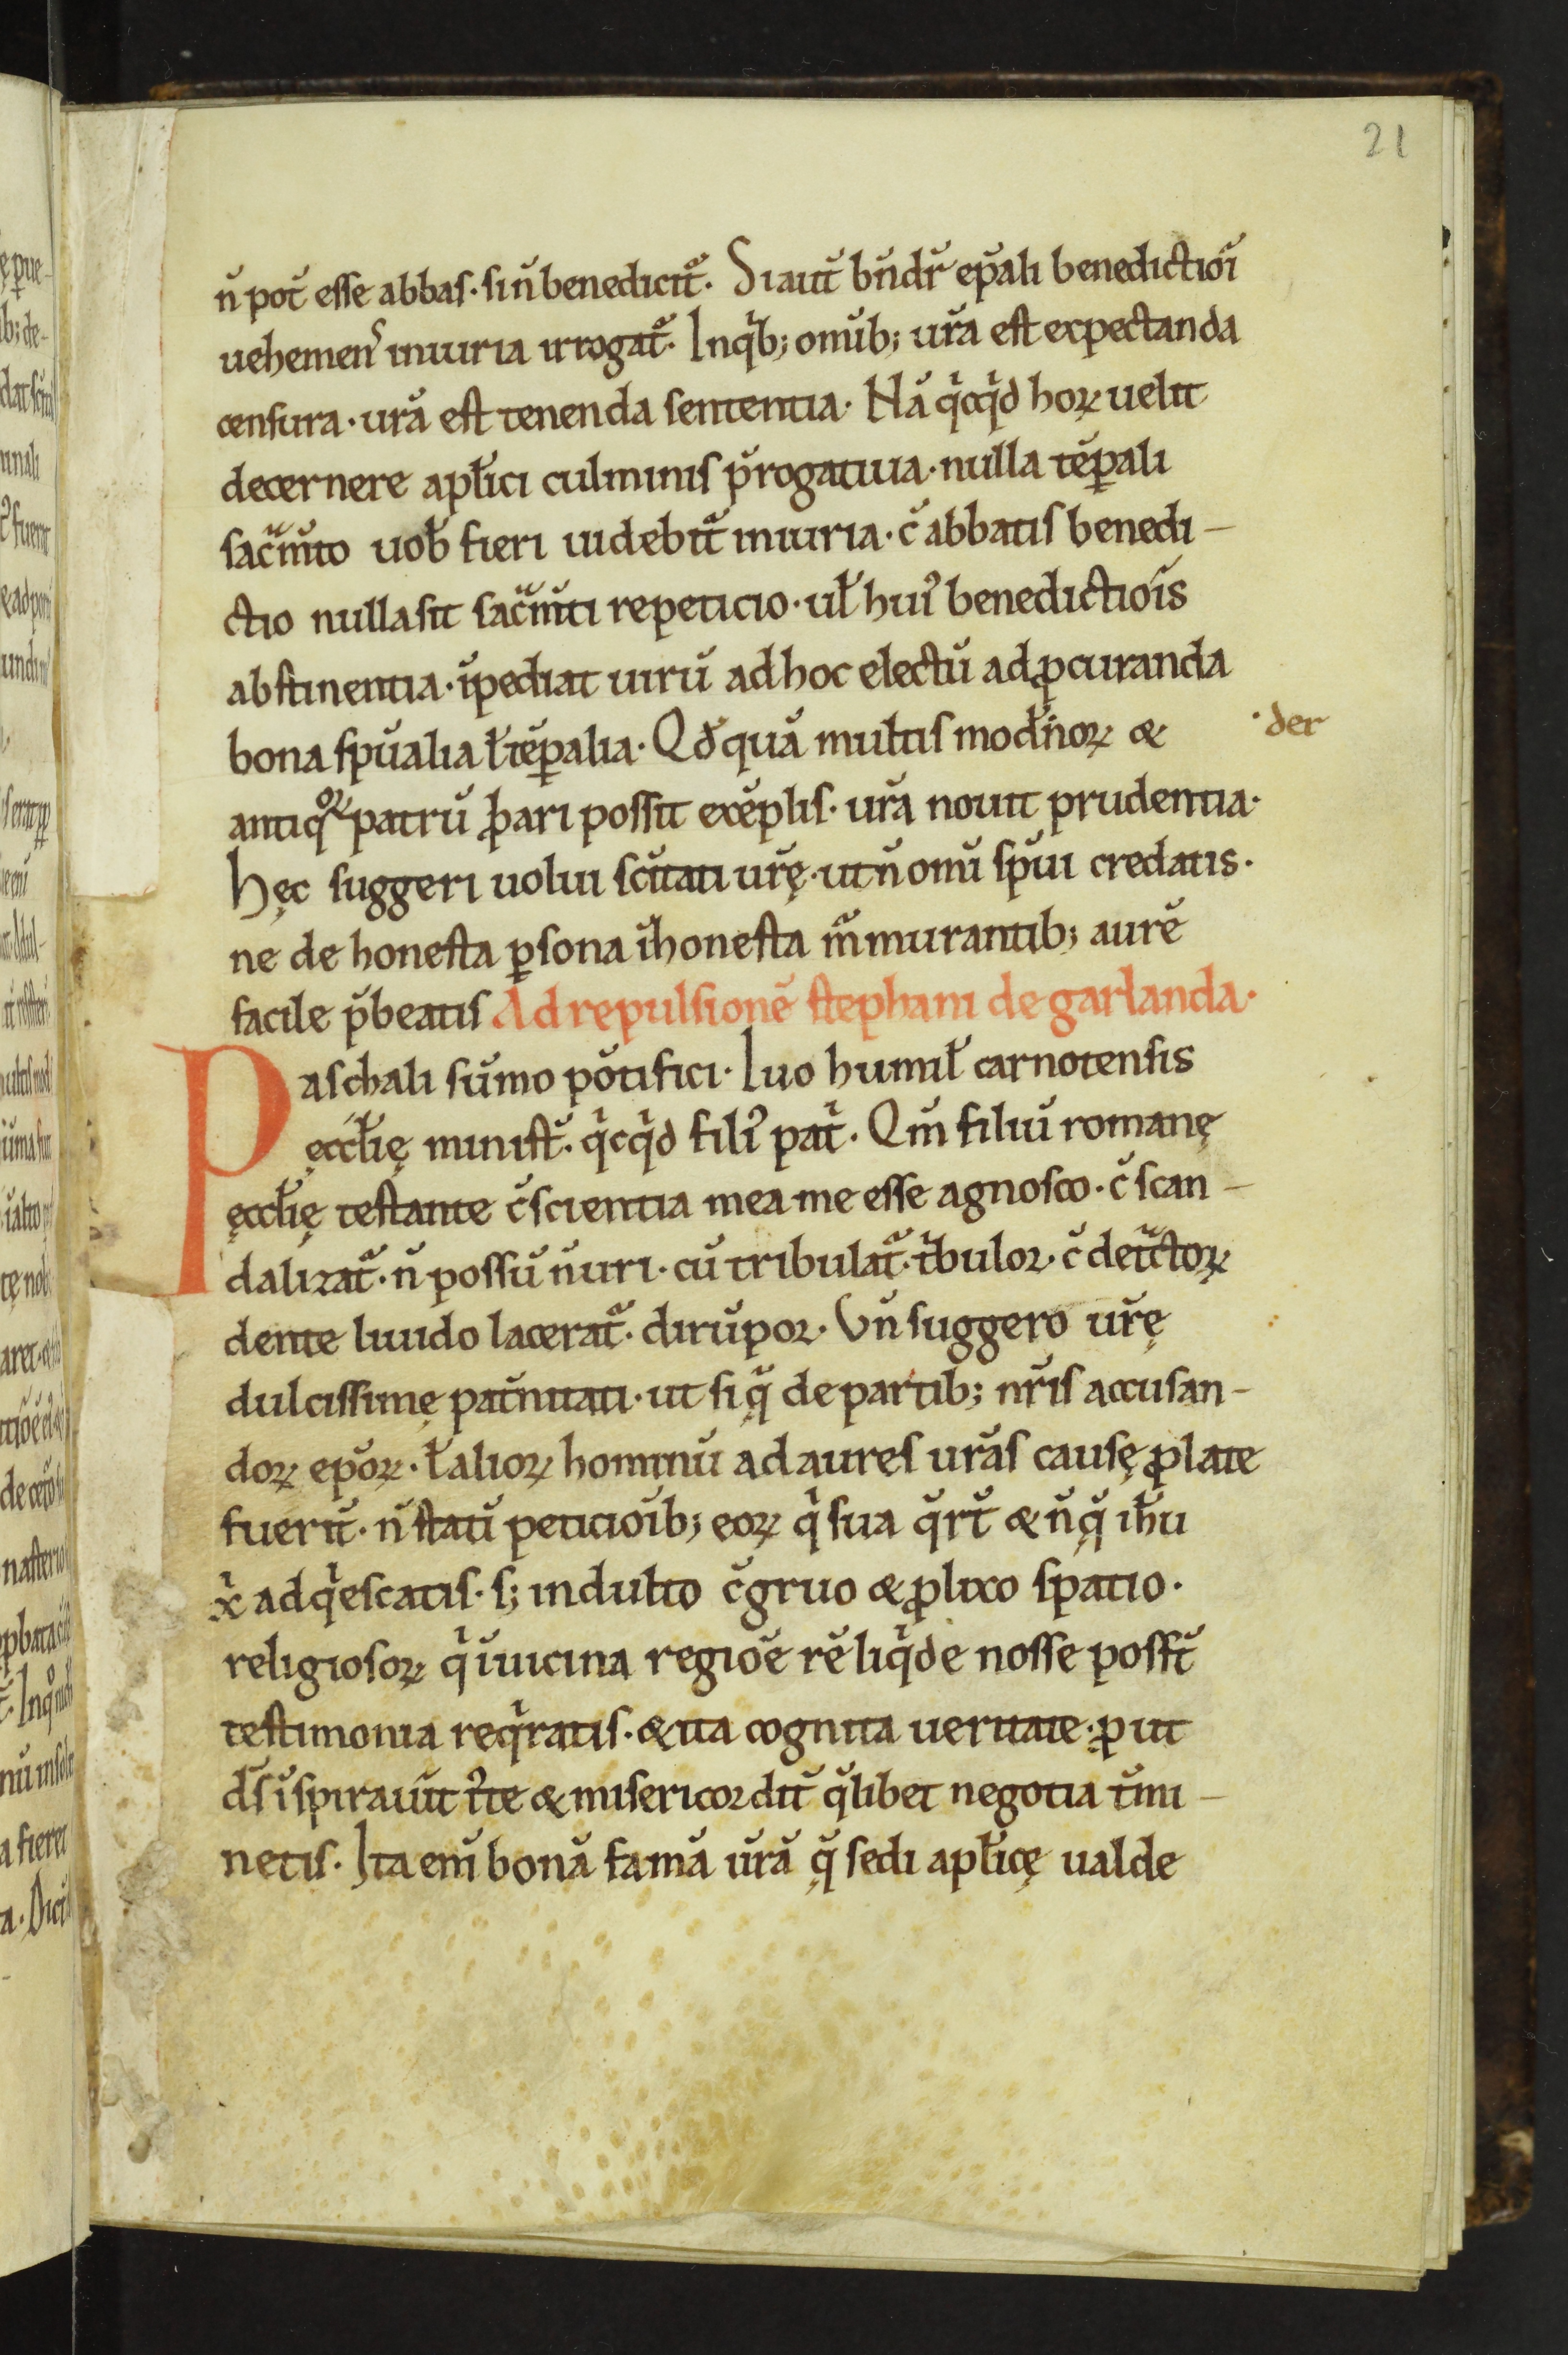 21
n̄ pot̄ esse abbas· si n̄ benedicit᷑· Si aut̄ bn̄dr̄ ep̄ali benedictiōi
uehemenꝰ iniuria irrogat᷑· In qͥb; om̄ib; ur̄a est expectanda
censura· ur̄a est tenenda sententia· Nā qͥcqͥd hoꝝ uelit
decernere apl̄ici culminis p̄rogatiua· nulla tēꝑali
sac̄m̄to uob̄ fieri uidebit᷑ iniuria· c̄ abbatis benedi-
ctio nulla sit sac̄m̄ti repeticio· ul̄ huiꝰ benedictiōis
abstinentia· īpediat uirū ad hoc electū ad ꝓcuranda
bona sp̄ualia l̄ tēꝑalia· Qđ quā multis mod̄noꝝ &
·der
antiqͦꝝ patrū ꝓbari possit exēplis· ur̄a nouit prudentia·
Hęc suggeri uolui sc̄itati ur̄ę· ut n̄ om̄i sp̄ui credatis·
ne de honesta ꝑsona īhonesta m̄murantib; aurē
facile p̄beatis Ad repulsionē stephani de garlanda·
Paschali sūmo pōtifici· Iuo humil̄ carnotensis
ęccl̄ię minist̄· qͥcqͥd filiꝰ patͥ· Qm̄ filiū romanę
ęccl̄ię testante c̄scientia mea me esse agnosco· c̄ scan-
dalizat᷑· n̄ possū n̄ uri· cū tribulat᷑· tͥbulor· c̄ det̄ctoꝝ
dente liuido lacerat᷑· dirūpor· Vn̄ suggero ur̄ę
dulcissimę pat̄nitati· ut siq̄ de partib; nr̄is accusan-
doꝝ ep̄oꝝ· l̄ alioꝝ hominū ad aures ur̄as causę ꝓlate
fuerīt· n̄ statī peticiōib; eoꝝ qͥ sua q̄rt̄ & n̄ q̄ ih̄u
xͥ adqͥescatis· s; indulto c̄gruo & ꝓlixo spatio·
religiosoꝝ qͥ ī uicina regiōe rē liqͥde nosse posst̄
testimonia reqͥratis· & ita cognita ueritate· ꝓut
d̄s īspirauīt rͨte & misericordit̄ q̄libet negotia t̄mi-
netis· Ita em̄ bonā famā ur̄ā q̄ sedi apl̄icę ualde